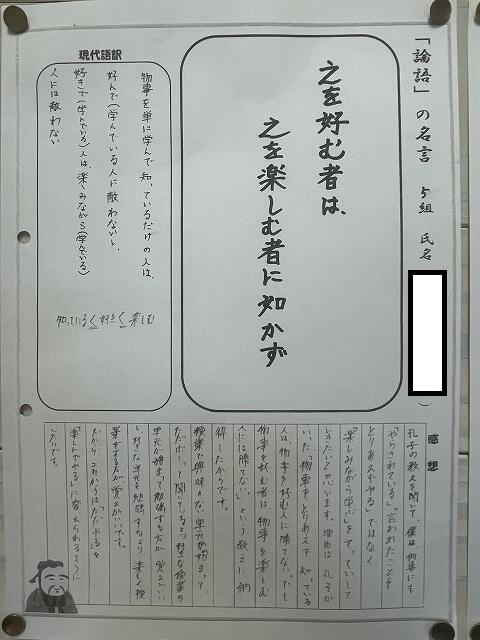 「論語」の名言 5組 氏名
之を好む者は、
之を楽しむ者に如かず
現代語訳
物事を単に学んで知っているだけの人は、
好んで(学んでいる)人に敵わないし、
好きで(学んでいる)人は、楽しみながら(学んでいる)
人には敵わない
知っている<好き<楽しむ
感想
孔子の教えを聞いて、僕は何事にも
「やらされている」「言われたことを
とりあえずやる」ではなく
「楽しみながら学ぶ」をやっていして
いきたいと思います。理由は、孔子が
いった「物事をとりあえず知っている
人は、物事を好む人に勝てない。でも
物事を好む者は物事を楽しむ
人には勝てない」という教えに納
得したからです。
授業で興味のない単元が始まって、
ただボーっと聞いているより好きな授業の
単元が始まって勉強する方が覚えがいい
し、好きな単元を勉強するより楽しく授
業をする方が覚えがいいです。
だから、これからは「ただやる」を
「楽しんでやる」に変えられるように
したいです。